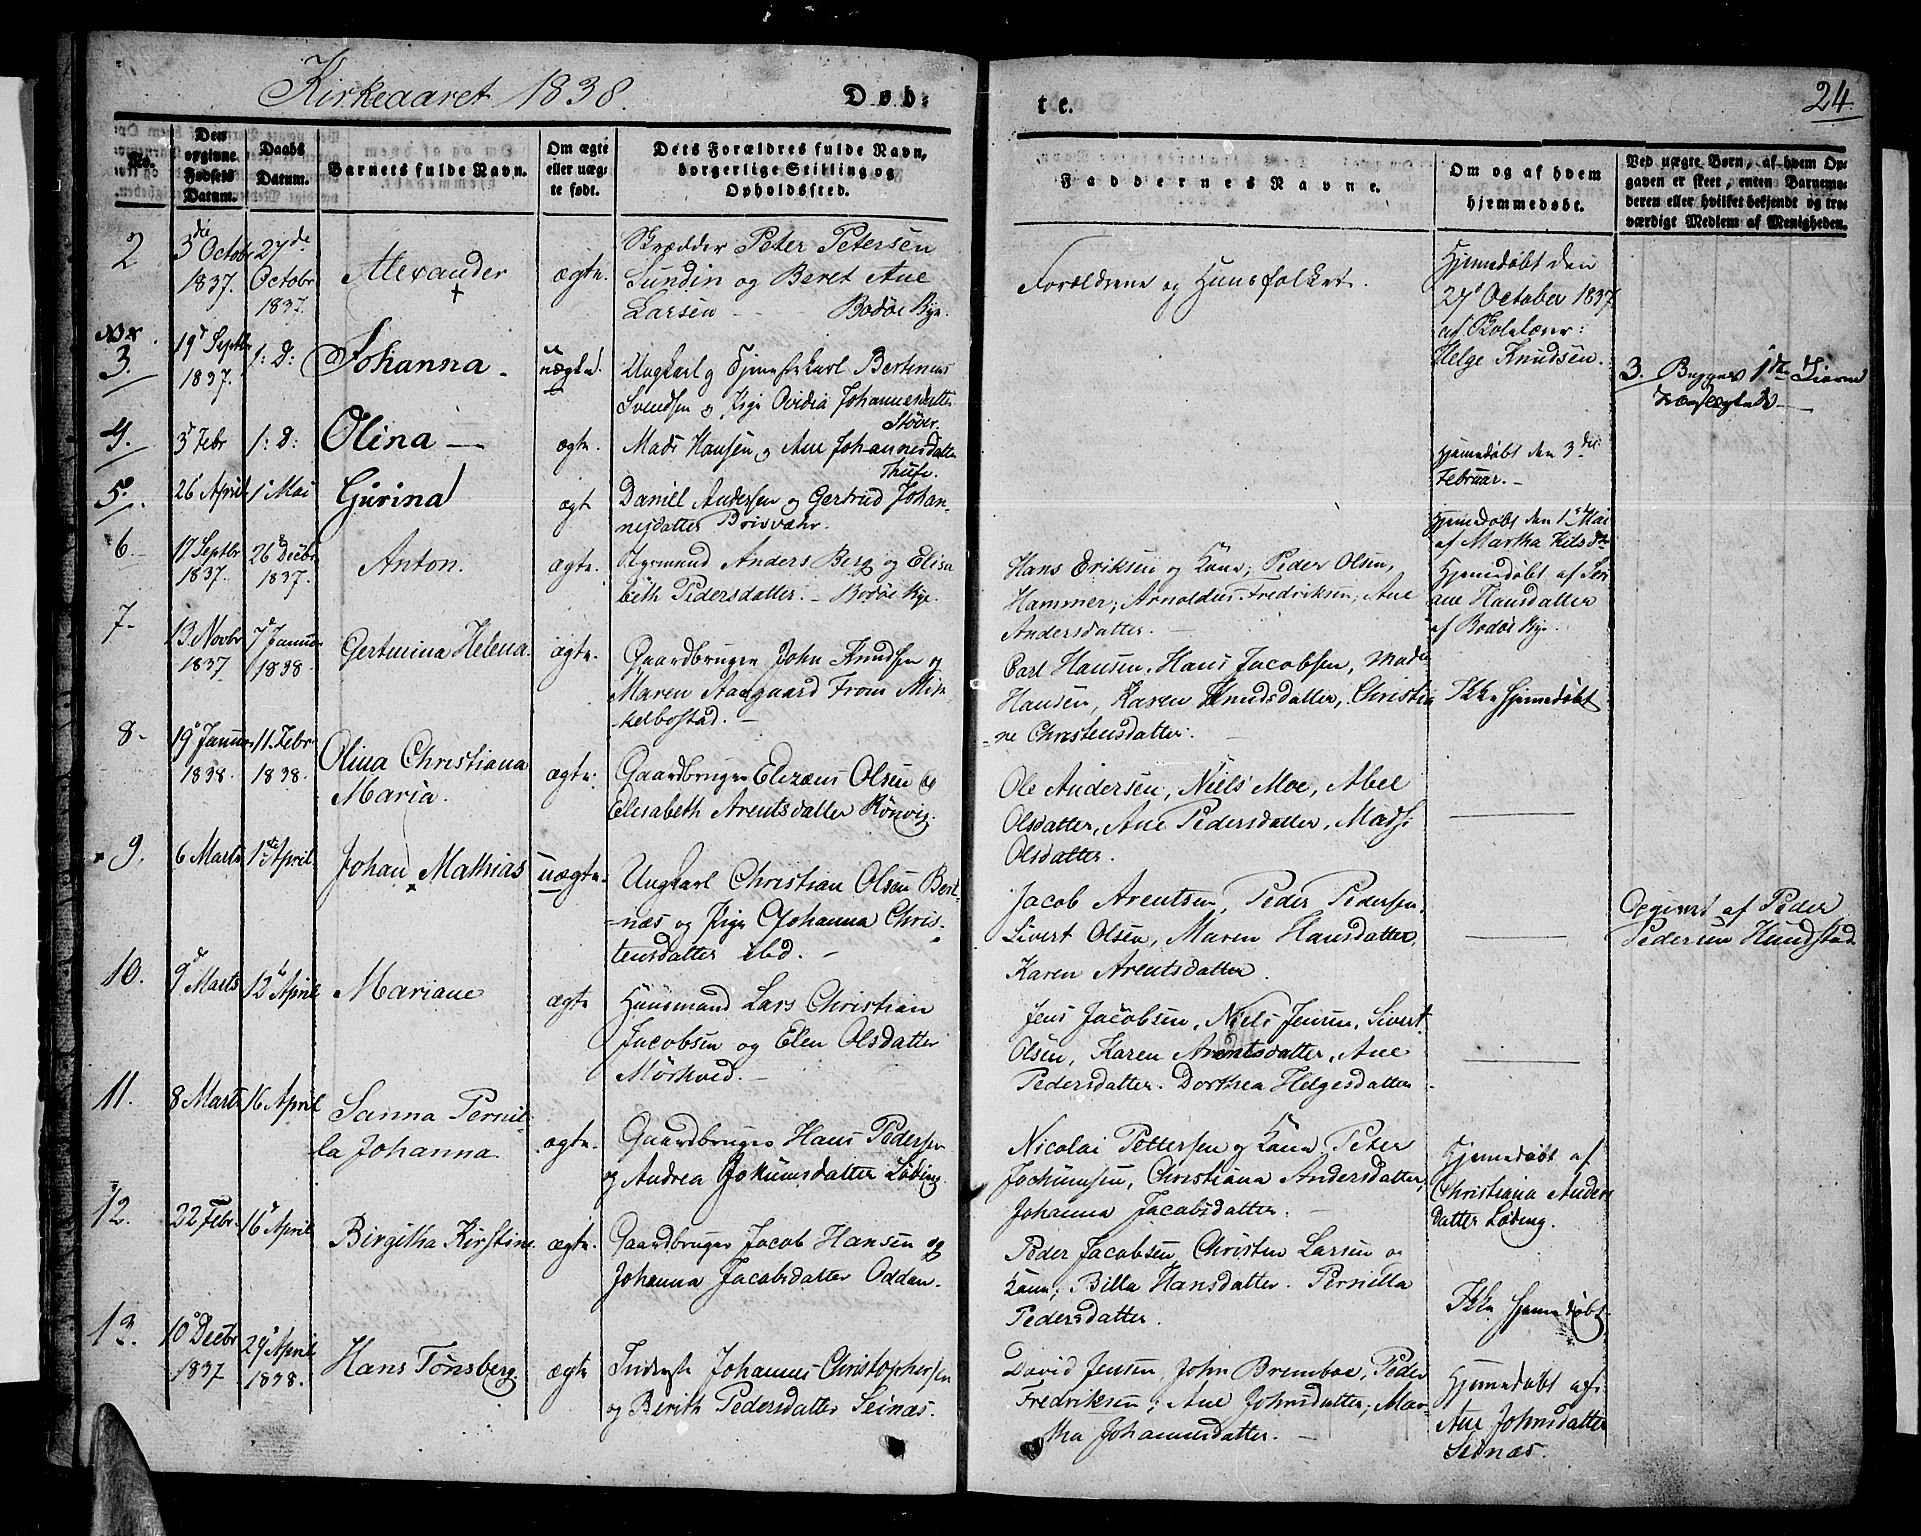 Kirkeaaret 1838.
Døb-
te.
24.
No.
Den opgivne Fødsels Datum.
Daabs Datum.
Barnets fulde Navn.
Om ægte eller uægte født.
Dets Forældres fulde Navn, borgerlige Stilling og Opholdssted.
Faddernes Navne.
Om og af hvem hjemmedøbt.
Ved uægte Børn, af hvem Opgaven er skeet, enten Barnemoderen eller hvilket bekjendt og troværdigt Medlem af Menigheden.
2
3die Octobr 1837.
27de Octobr 1837.
Alexander
+
ægte.
Skrædder Peter Petersen
Sundin og Beret Ane
Larsen Bodøe Bye.
Forældrene og Huusfolket.
Hjemedøbt den
27d October 1837
af Skolelærer:
Helge Knudsen.
3.
19d Septbr 1837.
1: D:
Johanna
uægte.
Ungkarl og Tjenestekarl Bertinus
Svendsen og Pige Ovidia Johannesdatter
Støver.
3. Begges 1ste Leierm
4.
3d Febr
1: D:
Olina
ægte.
Mads Hansen og Ane Johannesdatter
hjemedøbt den 3die
Februar.
5.
26 April
1d Mai
Gurina
ægt
Daniel Andersen og Gertrud Johan-
nesdatter Brisvæhr.
Hjemedøbt den 1d Mai
af Martha
6.
17 Septbr 1837.
26d Decbr 1837.
Anton.
ægte.
Anders Berg og Elisa
beth Pedersdatter. Bodøe Bye.
Hans Eriksen og Kone; Peder Olsen,
Hammer; Arnoldus Fredriksen, Ane
Andersdatter.
Hjemedøbt af
ane Hansdatter
af Bodøe Bye.
7.
13 Novbr 1837
7d Januar 1838
Gertmina Helena.
ægte.
Gaardbruger John Knudsen og
Maren Aasgaard From Mik
kelbostad.
Carl Hansen, Hans Jacobsen, Mads
Hansen, Karen Knudsdatter, Christia
ne Christensdatter.
Ikke hjemedøbt
8.
19d Januar 1838.
11. Febr 1838.
Olina Christiana
Maria.
ægte.
Gaardbruger Elizæus Olsen og
Elisabeth Arentsdatter Rønvig.
Ole Andersen, Niels Moe, Abel
Olsdatter, Ane Pedersdatter, Mads
Olsdatter.
9.
6 Marts
1ste April
Johan Mathias
uægte.
Ungkarl Christian Olsen Bert-
næs og Pige Johanna Chris-
tensdatter ibd.
Jacob Arentsen, Peder Pedersen,
Sivert Olsen, Maren Hansdatter,
Karen Arentsdatter.
Opgivet af Peder
Pedersen Hundstad
10.
9d Marts
12d April
Mariane
ægte
Huusmand Lars Christian
Jacobsen og Elen Olsdatter
Mørkved.
Jens Jacobsen, Niels Jensen, Sivert
Olsen, Karen Arentsdatter, Ane
Pedersdatter. Dorthea Helgesdatter
11.
8 Marts
16 April
Sanna Pernil-
la Johanna.
ægte.
Gaardbruger Hans Pedersen
og Andrea Jokumsdatter Løding
Nicolai Pettersen og Kone Peter
Jochumsen, Christiana Andersdatter,
Johanna Jacobsdatter.
Hjemedøbt af
Christiana Anders
datter Løding.
12.
22 Febr.
16d April
Birgitha Kirstine.
ægte.
Gaardbruger Jacob Hansen og
Johanna Jacobsdatter Oddan.
Peder Jacobsen, Christen Larsen og
Kone; Billa Hansdatter. Pernilla
Pedersdatter.
Ikke hjemedøbt
13.
10d Decbr 1837
29d April 1838.
Hans Tønsberg.
ægte
Inderste Johannes Christophersen
og Berith Pedersdatter Seinæs.
David Jensen, John Bremboe, Peder
Fredriksen; Ane Johnsdatter, Mar-
tha Johannesdatter.
Hjemedøbt af
Ane Johnsdatter
Seinæs.